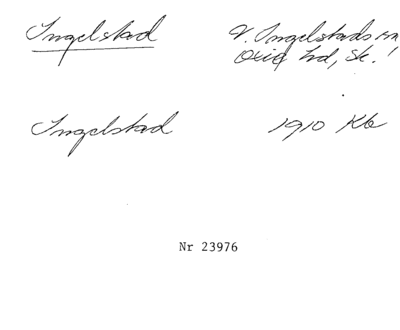 Ingelstad V. Ingelstads sn
Oxie hd, Sk.!
Ingelstad 1910 Kb
Nr 23976